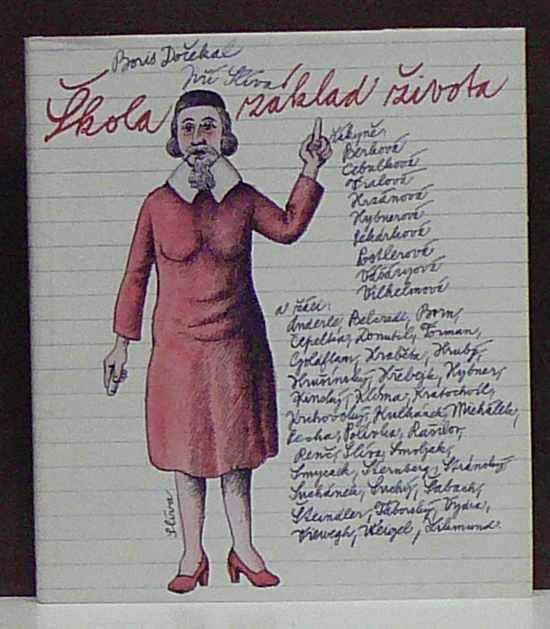 Boris Dočekal
Jiří Slíva
Škola základ života
žákyně:
Berková
Cebulková
Fralová
Hrzánová
Hybnerová
Pekárková
Postlerová
Vášáryová
Vilhelmová
a žáci:
Anderle, Belcredi, Born,
Donutil, Forman,
Goldflam, Hraběta, Hrubý,
Hrušínský, Hřebejk, Hybner,
Kinský, Klíma, Kratochvíl,
Krchovský, Kulhánek, Michálek,
Pecha, Polívka, Rajdor,
Renč, Slíva, Smoljak,
Smyczek, Sternberg, Stránský,
Suchánek, Suchý, Šabach,
Šteindler, Táborský, Vydra,
Viewegh, Weigel, Zikmund.
Slíva